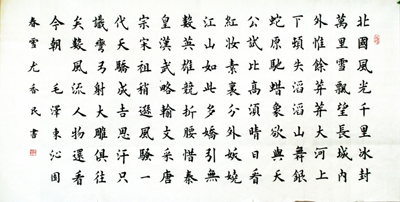 北國風光千里冰封
萬里雪飄望長城內
外惟餘莽莽大河上
下頓失滔滔山舞銀
蛇原馳蠟象欲與天
公試比高須晴日看
紅妝素裹分外妖嬈
江山如此多嬌引無
數英雄競折腰惜秦
皇漢武略輸文采唐
宗宋祖稍遜風騷一
代天驕成吉思汗只
識彎弓射大雕俱往
矣數風流人物還看
今朝 毛澤東沁園
春雪 尤 民書